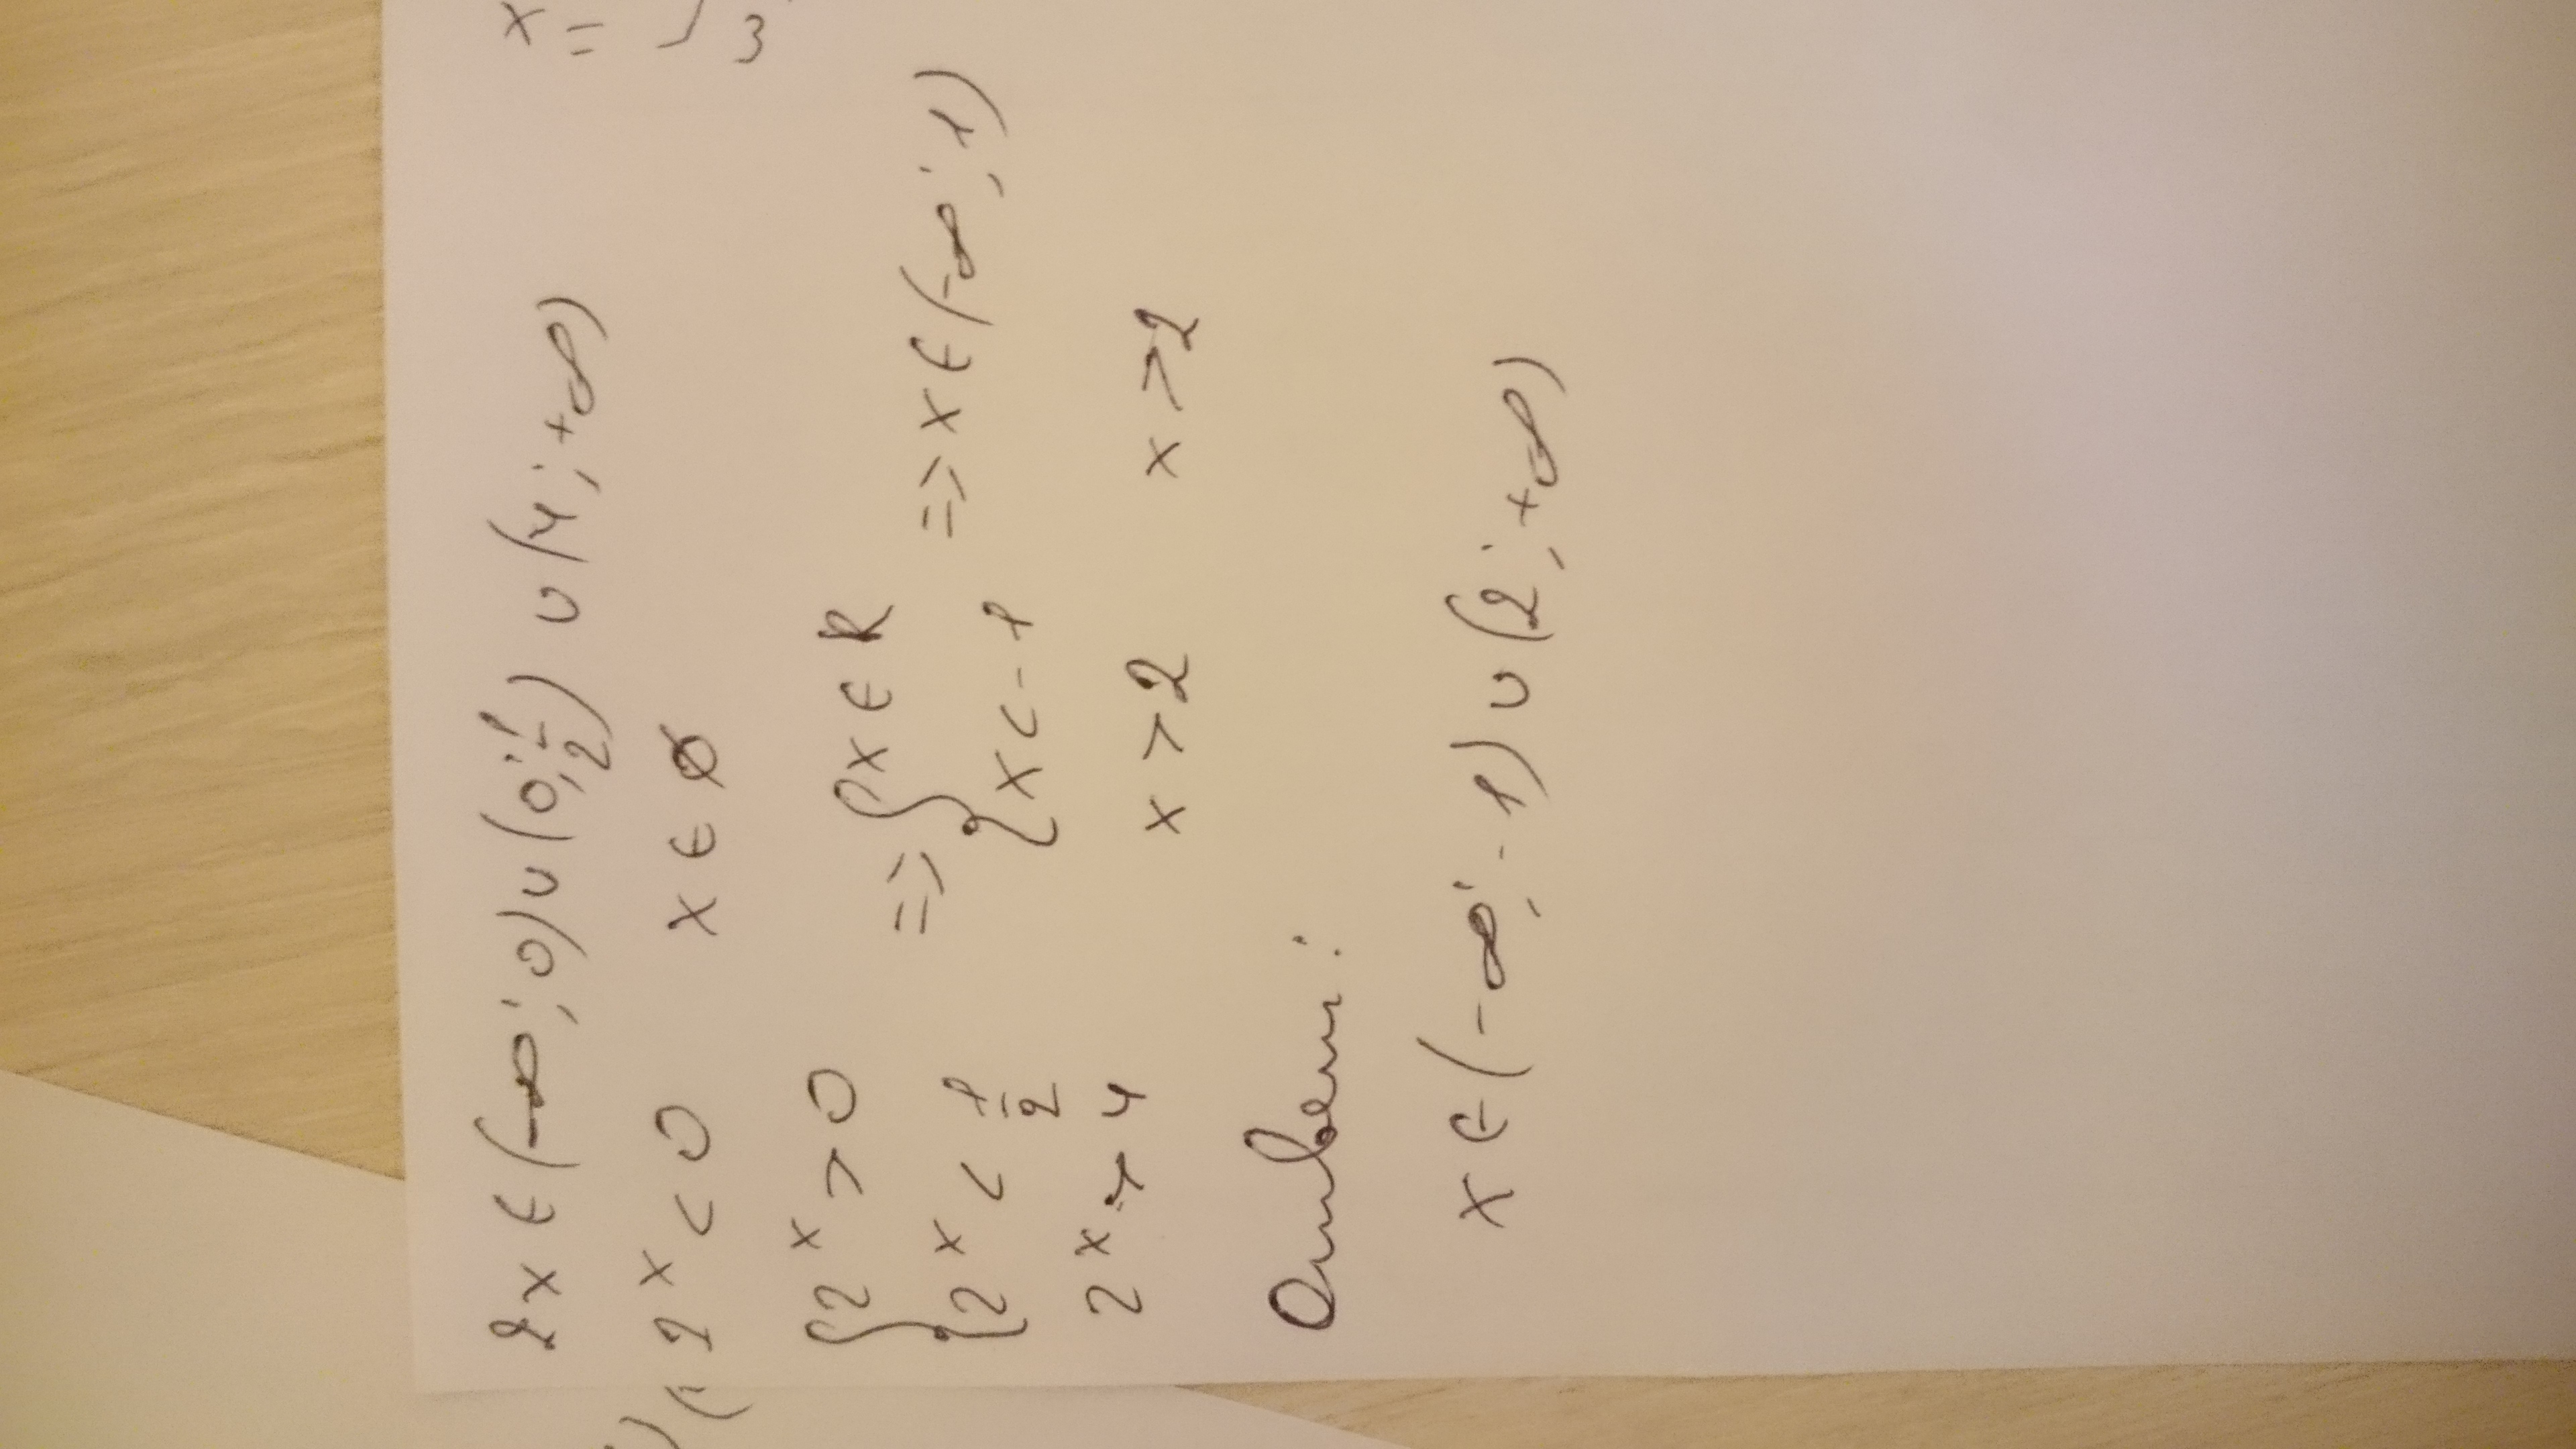 2^x ∈ (-∞; 0) ∪ (0; 1/2) ∪ (4; +∞)
2^x < 0 x ∈ ∅
{ 2^x > 0 => { x ∈ R
{ 2^x < 1/2 { x < -1 => x ∈ (-∞; 1)
2^x > 4 x > 2 x > 2
Ответ:
x ∈ (-∞; -1) ∪ (2; +∞)